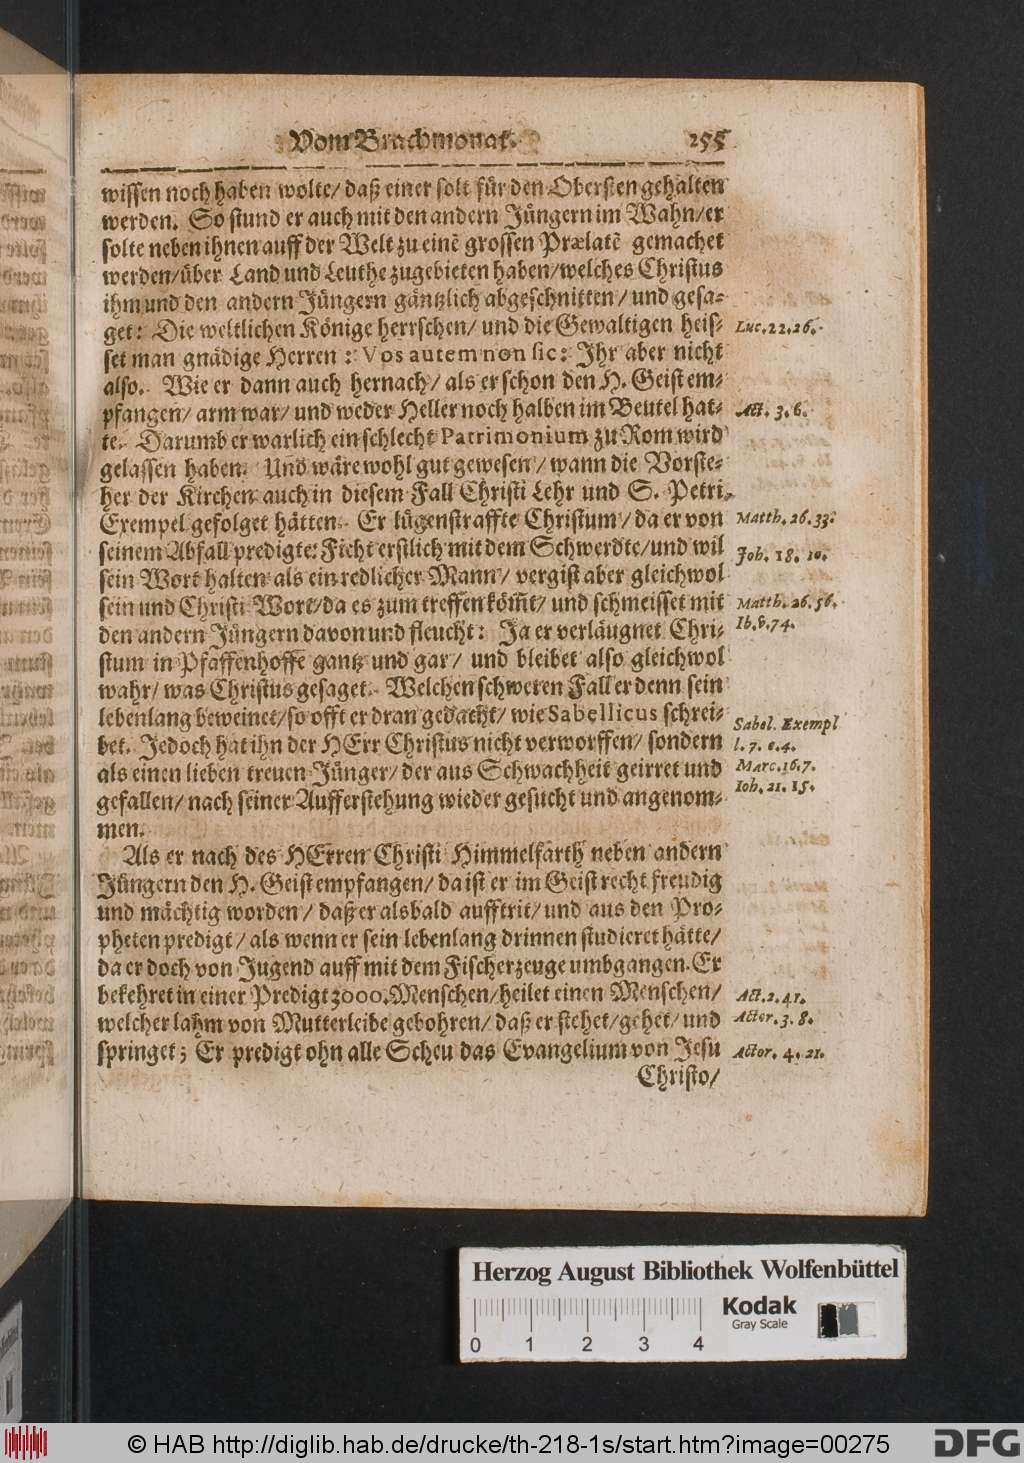 Vom Brachmonat. 255
wissen noch haben wolte/ daß einer solt für den Obersten gehalten
werden. So stund er auch mit den andern Jüngern im Wahn/ er
solte neben ihnen auff der Welt zu einē grossen Prælatē gemachet
werden/ über Land und Leuthe zugebieten haben/ welches Christus
ihm und den andern Jüngern gäntzlich abgeschnitten/ und gesa-
get: Die weltlichen Könige herrschen/ und die Gewaltigen heis- Luc. 22. 26.
set man gnädige Herren: Vos autem non sic: Ihr aber nicht
also. Wie er dann auch hernach/ als er schon den H. Geist em-
pfangen/ arm war/ und weder Heller noch halben im Beutel hat- Act. 3. 6.
te. Darumb er warlich ein schlecht Patrimonium zu Rom wird
gelassen haben. Und wäre wohl gut gewesen/ wann die Vorste-
her der Kirchen auch in diesem Fall Christi Lehr und S. Petri
Exempel gefolget hätten. Er lügenstraffte Christum/ da er von Matth. 26. 33.
seinem Abfall predigte: Ficht erstlich mit dem Schwerdte/ und wil Joh. 18. 10.
sein Wort halten als ein redlicher Mann/ vergist aber gleichwol
sein und Christi Wort/ da es zum treffen köm̃t/ und schmeisset mit Matth. 26. 56.
den andern Jüngern davon und fleucht: Ja er verläugnet Chri- Ib. v. 74.
stum in Pfaffenhoffe gantz und gar/ und bleibet also gleichwol
wahr/ was Christus gesaget. Welchen schweren Fall er denn sein
lebenlang beweinet/ so offt er dran gedacht/ wie Sabellicus schrei- Sabel. Exempl
bet. Jedoch hat ihn der HErr Christus nicht verworffen/ sondern l. 7. c. 4.
als einen lieben treuen Jünger/ der aus Schwachheit geirret und Marc. 16. 7.
gefallen/ nach seiner Aufferstehung wieder gesucht und angenom- Ioh. 21. 15.
men.
Als er nach des HErren Christi Himmelfarth neben andern
Jüngern den H. Geist empfangen/ da ist er im Geist recht freudig
und mächtig worden/ daß er alsbald aufftrit/ und aus den Pro-
pheten predigt/ als wenn er sein lebenlang drinnen studieret hätte/
da er doch von Jugend auff mit dem Fischerzeuge umbgangen. Er
bekehret in einer Predigt 3000. Menschen/ heilet einen Menschen/ Act. 2. 41.
welcher lahm von Mutterleibe gebohren/ daß er stehet/ gehet/ und Actor. 3. 8.
springet; Er predigt ohn alle Scheu das Evangelium von Jesu Actor. 4. 21.
Christo/
Herzog August Bibliothek Wolfenbüttel
Kodak
Gray Scale
0 1 2 3 4
© HAB http://diglib.hab.de/drucke/th-218-1s/start.htm?image=00275
DFG